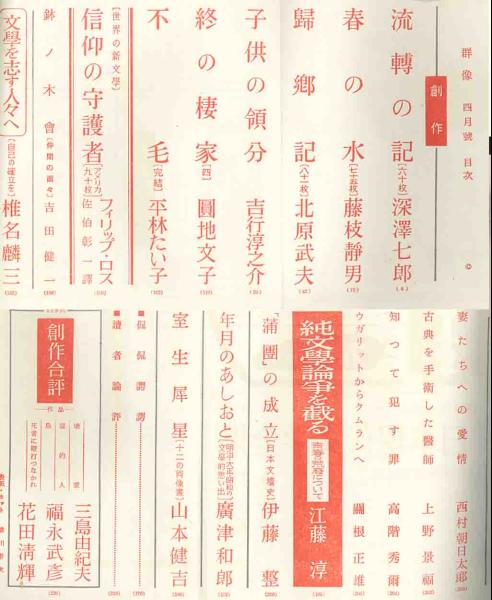 群像 四月號 目次
創作
流轉の記〔六十枚〕深澤七郎
春の水〔七十五枚〕藤枝靜男
歸鄕記〔八十枚〕北原武夫
子供の領分 吉行淳之介
終の棲家〔四〕圓地文子
不毛〔完結〕平林たい子
〔世界の新文學〕
信仰の守護者〔アメリカ九十枚〕フィリップ・ロス 佐伯彰一譯
鉢ノ木會〔仲間の面々〕吉田健一
文學を志す人々へ〔自己の確立を〕椎名麟三
妻たちへの愛情 西村朝日太郎
古典を手術した醫師 上野景福
知つて犯す罪 高階秀爾
ウガリットからクムランへ 關根正雄
純文學論爭を截る 靑春の荒廢について 江藤淳
「蒲團」の成立〔日本文壇史〕伊藤整
年月のあしおと〔明治・大正・昭和の文壇的思い出〕廣津和郎
室生犀星〔十二の肖像畫〕山本健吉
■侃侃諤諤
■讀者論評
創作合評
作品
死者に鞭打つなかれ
三島由紀夫
福永武彥
花田淸輝